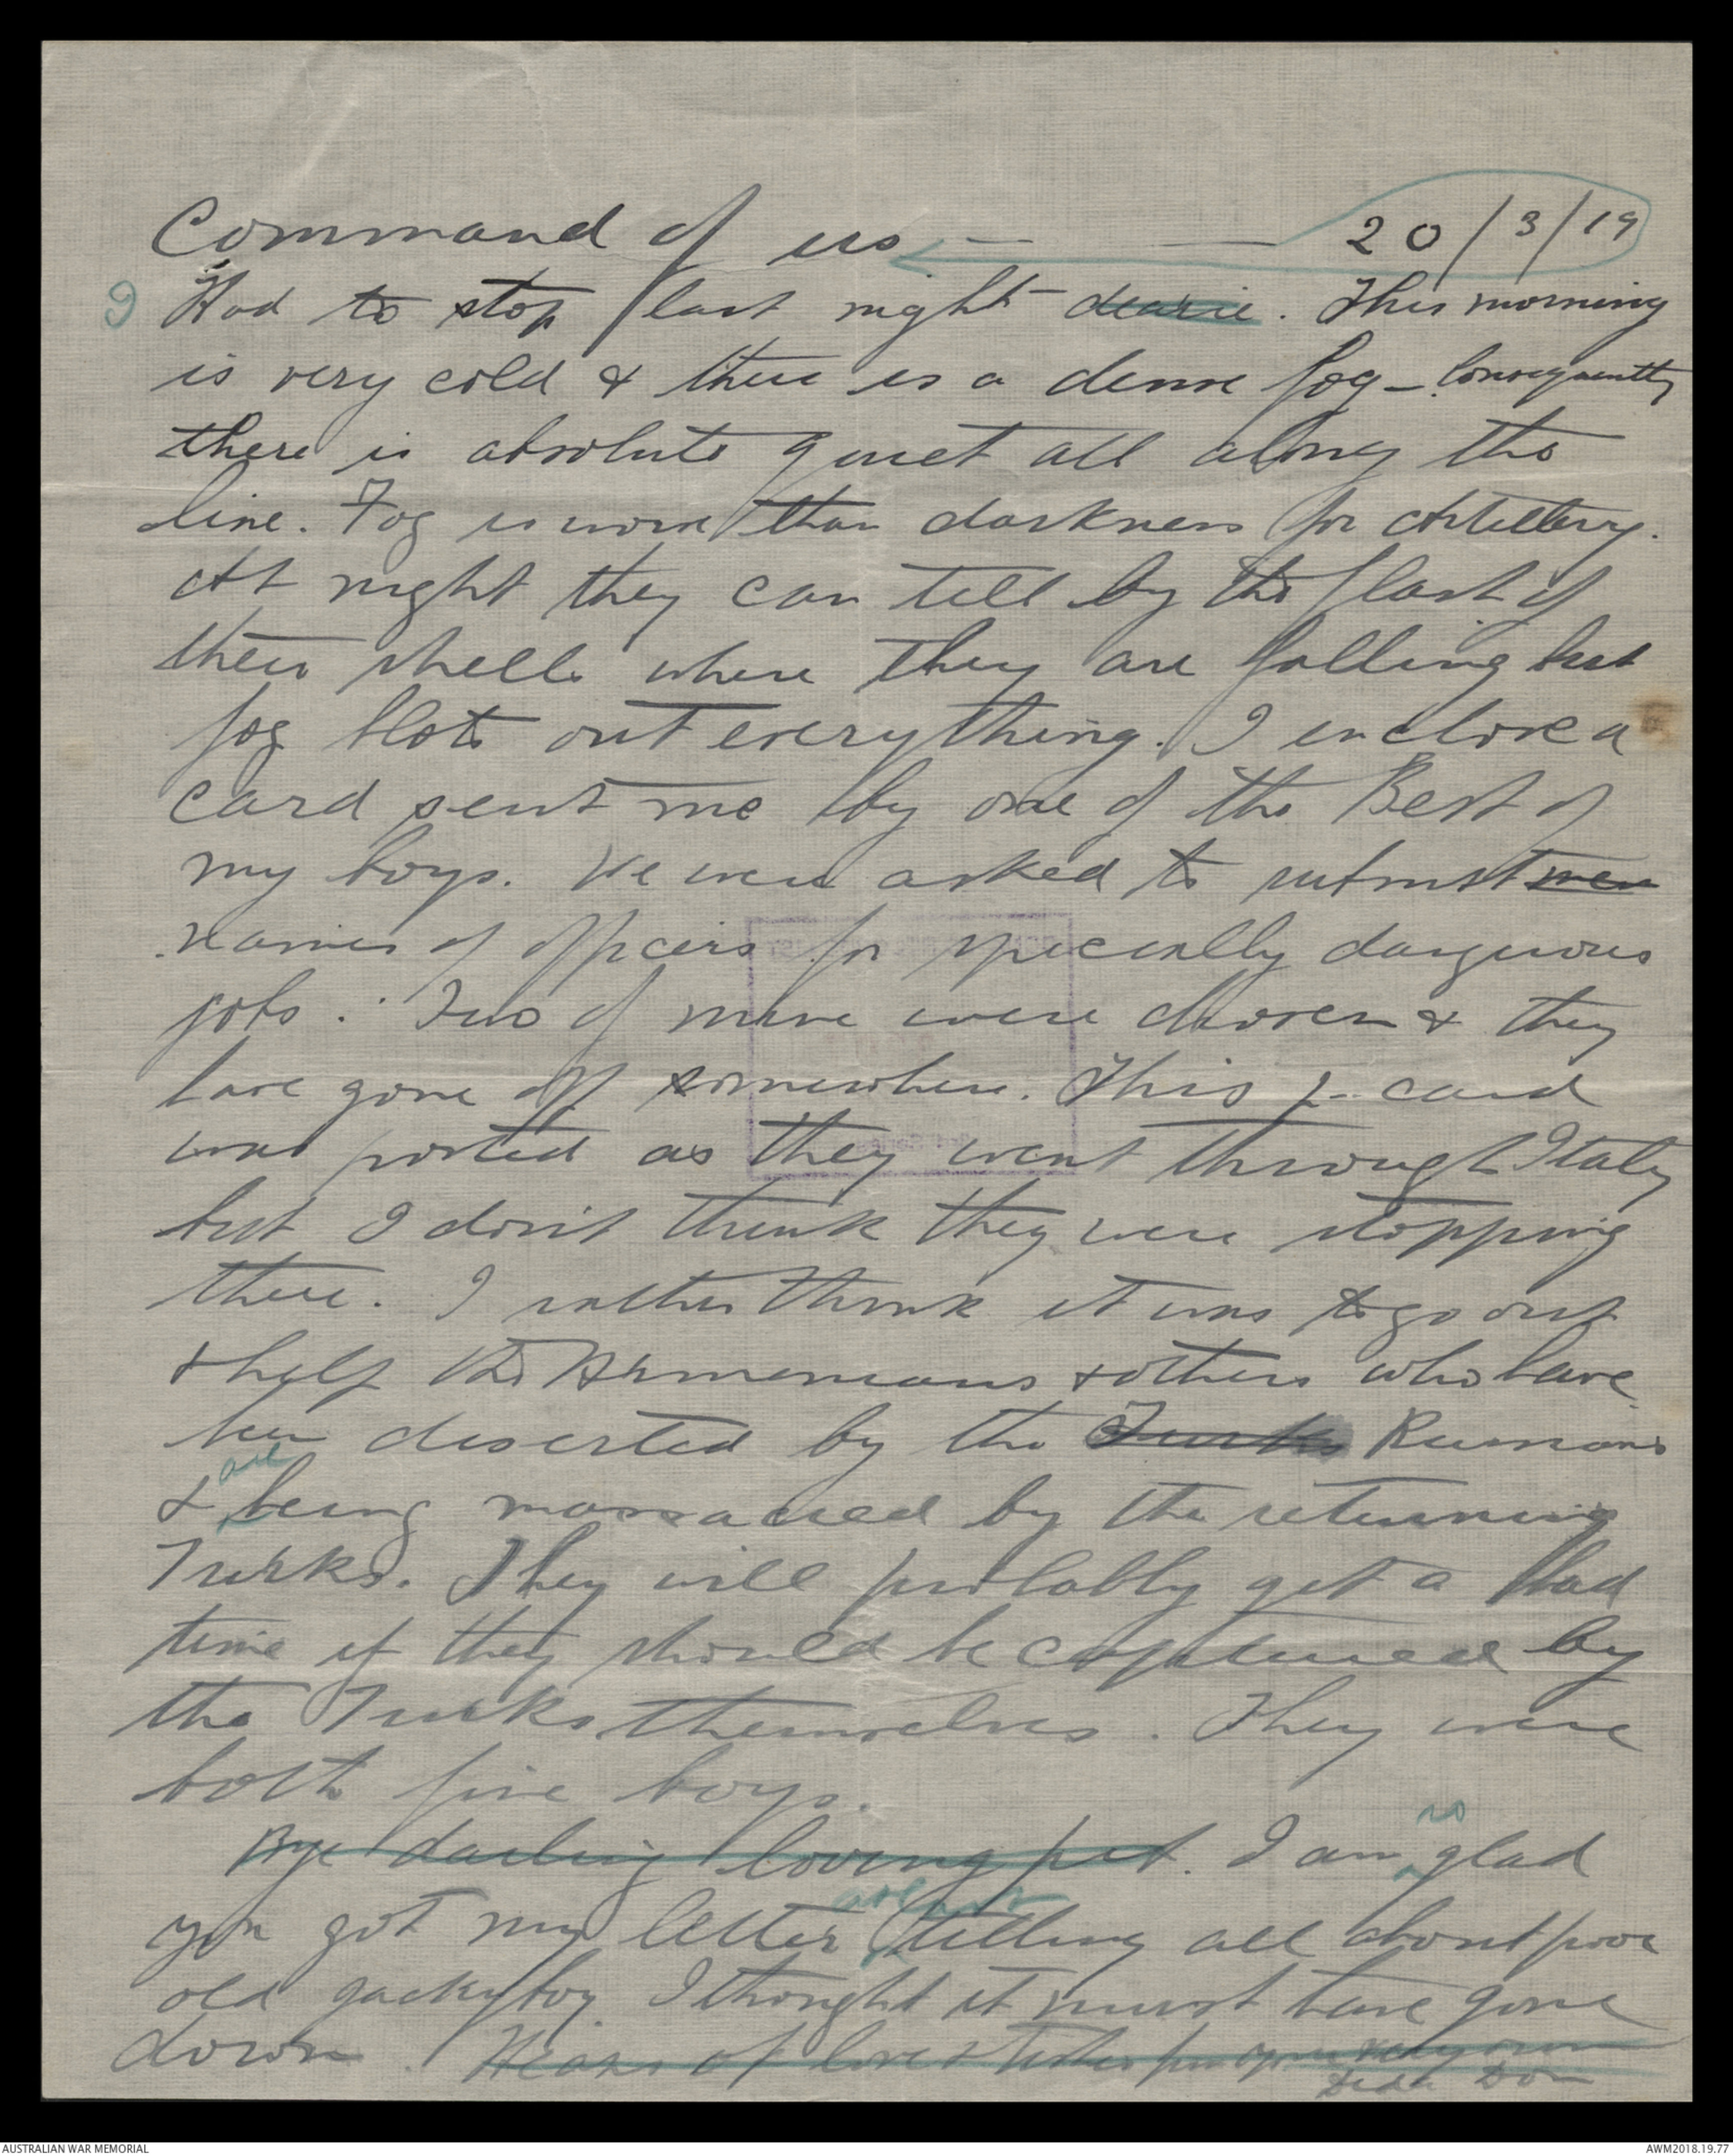 Command of us — — 20/3/19
9 Had to stop last night – dearie. This morning
is very cold & there is a dense fog – Consequently
there is absolute quiet all along the
line. Fog is worse than darkness for Artillery.
At night they can tell by the flash of
their shells where they are falling but
fog blots out everything. I enclose a
card sent me by one of the Best of
my boys. We were asked to submit men
names of officers for specially dangerous
jobs. Two of mine were chosen & they
have gone off somewhere. This p. card
was posted as they went through Italy
but I don't think they were stopping
there. I rather think it was to go out
& help the Armenians & others who have
been deserted by the Turks Russians
& are being massacred by the returning
Turks. They will probably get a bad
time if they should be captured by
the Turks themselves. They were
both fine boys.
Bye darling loving pet. I am so glad
you got my letter at last telling all about poor
old jackyboy. I thought it must have gone
down. Heaps of love & kisses from your very own
Dida Don
AUSTRALIAN WAR MEMORIAL
AWM2018.19.77